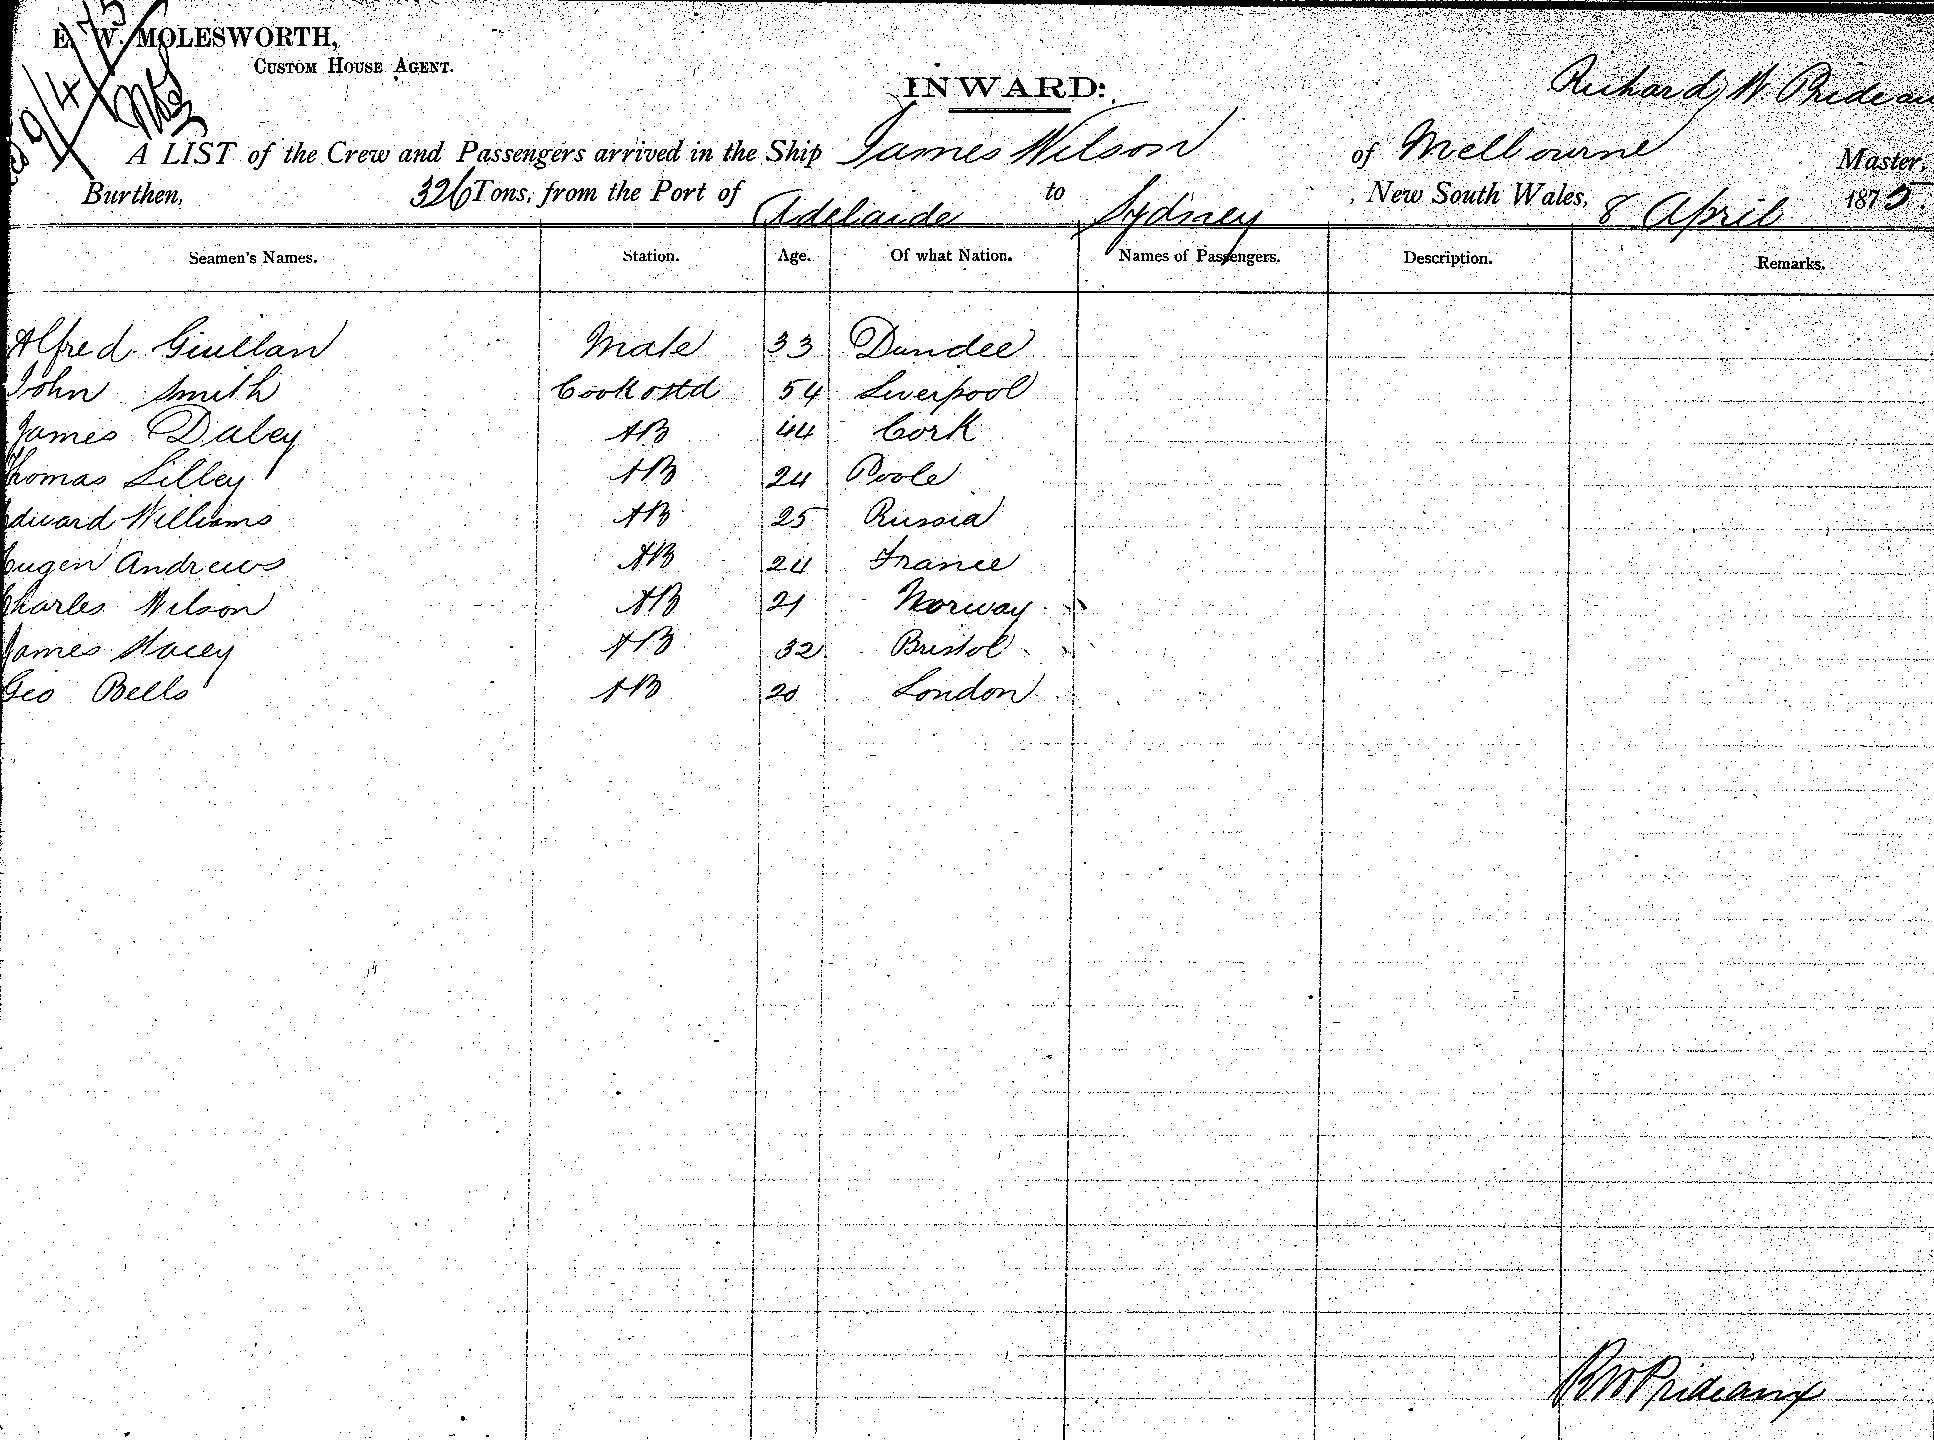 E. W. MOLESWORTH,
CUSTOM HOUSE AGENT.
9/4/75
INWARD:
Richard W Prideau
A LIST of the Crew and Passengers arrived in the Ship James Wilson of Melbourne Master,
Burthen, 326 Tons, from the Port of Adelaide to Sydney, New South Wales, 8 April 1875.
Seamen's Names. Station. Age. Of what Nation. Names of Passengers. Description. Remarks.
Alfred Giullan Mate 33 Dundee
John Smith Cook & std 54 Liverpool
James Daley AB 44 Cork
Thomas Lilley AB 24 Poole
Edward Williams AB 25 Russia
Eugen Andrews AB 24 France
Charles Wilson AB 21 Norway
James Stacey AB 32 Bristol
Geo Bells AB 20 London
RW Prideaux